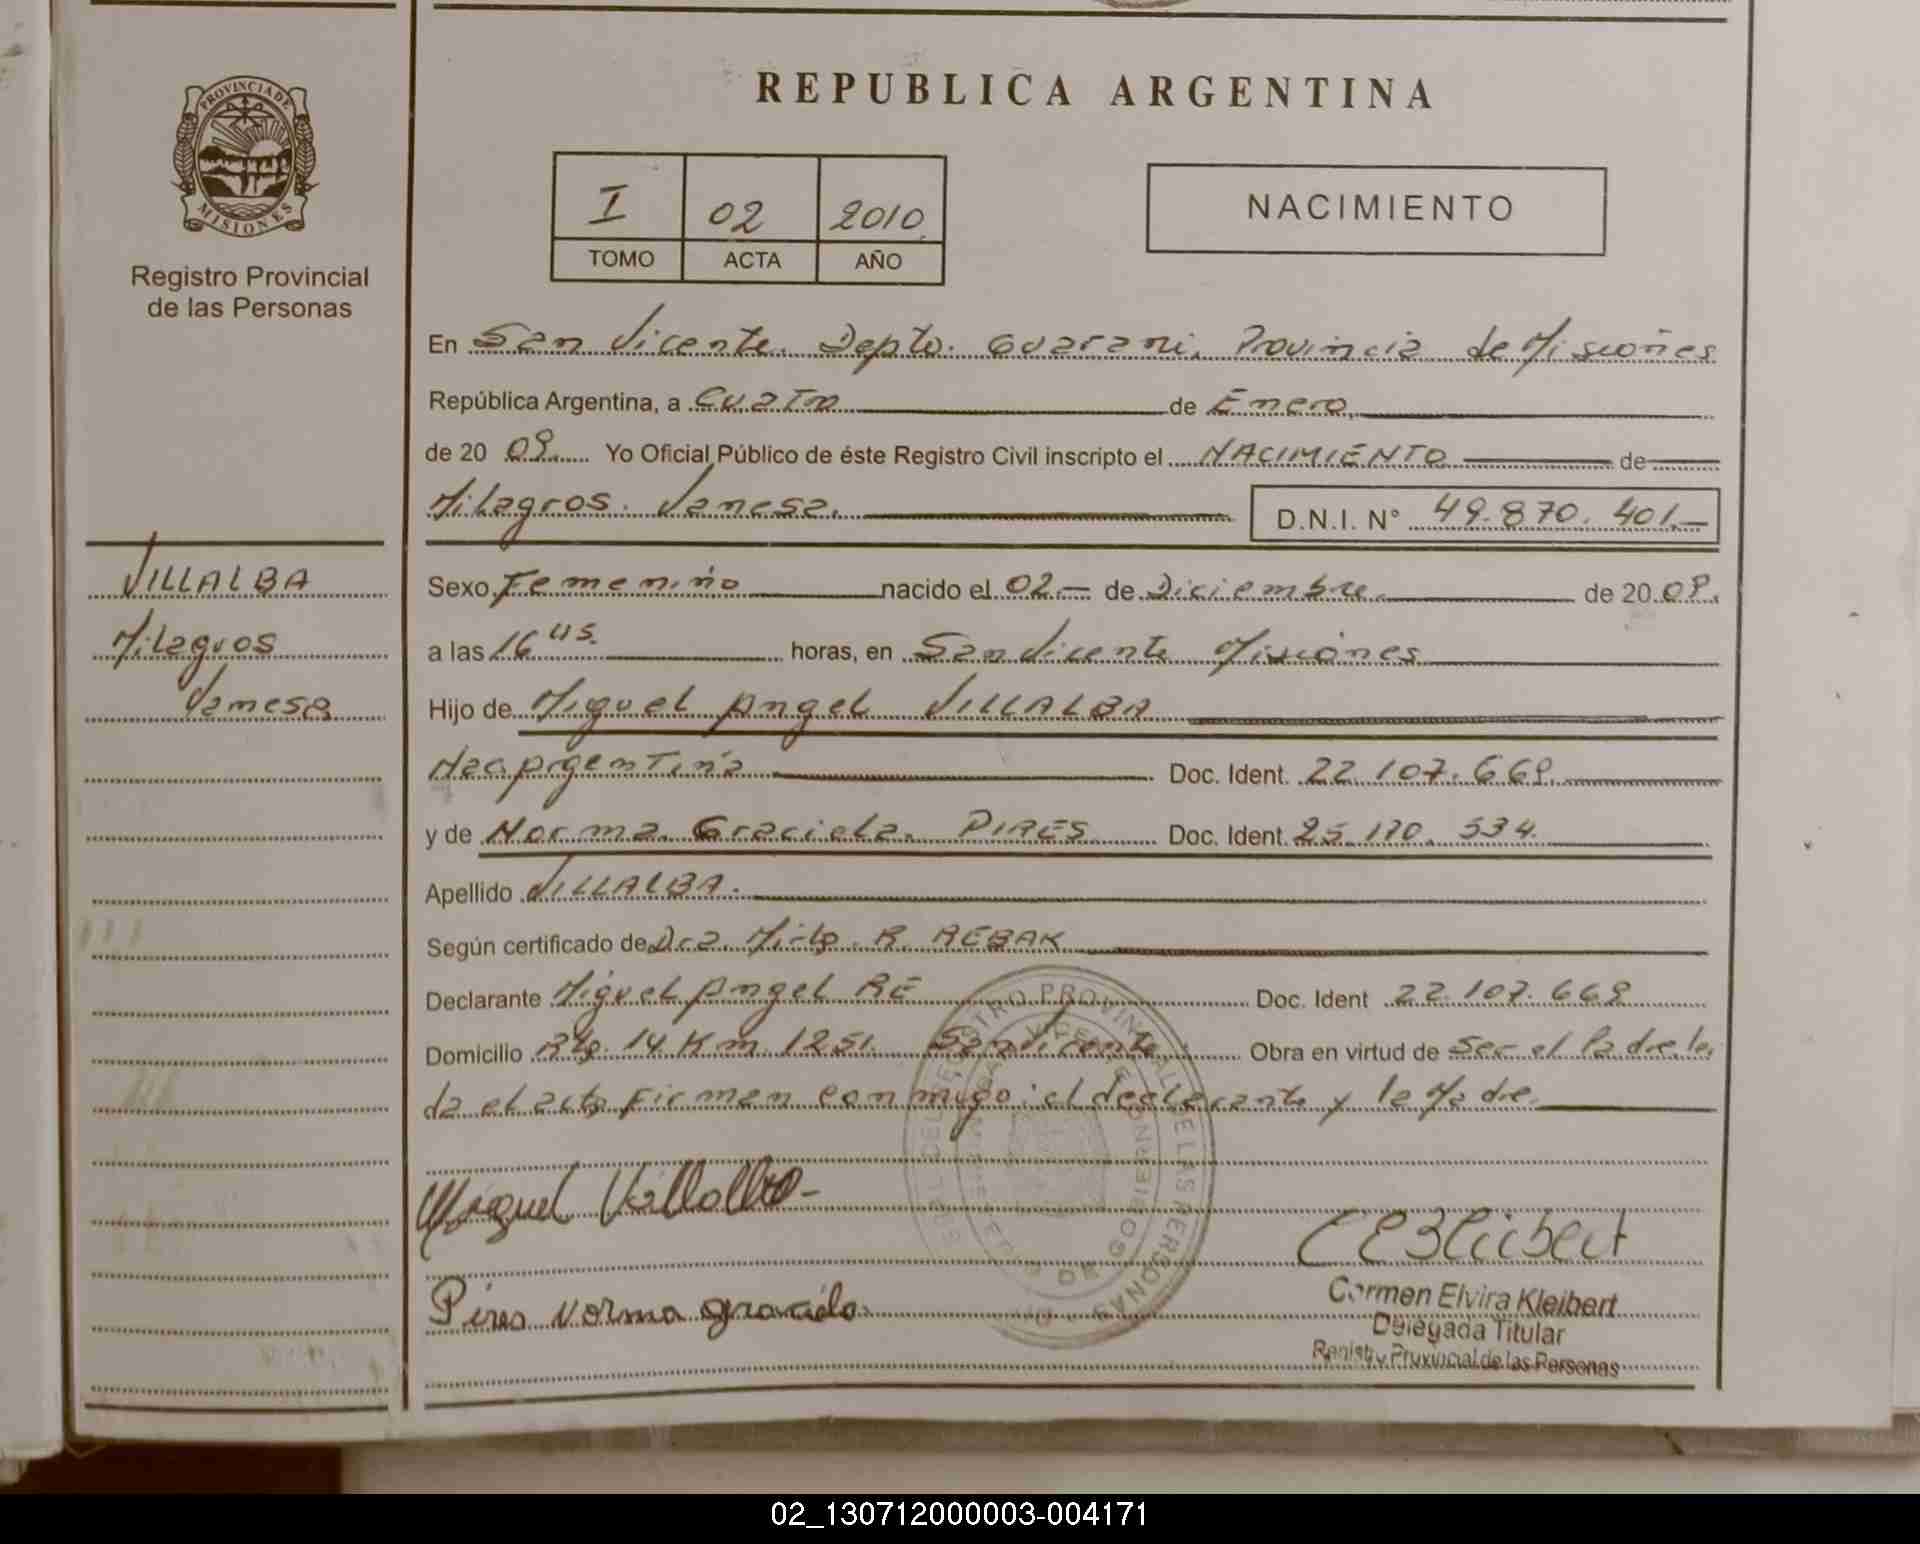 PROVINCIA DE
MISIONES
Registro Provincial
de las Personas
VILLALBA
Milagros
Vanesa
REPUBLICA ARGENTINA
I 02 2010
TOMO ACTA AÑO
NACIMIENTO
En San Vicente. Depto. Guarani, Provincia de Misiones
República Argentina, a Cuatro de Enero,
de 20 09. Yo Oficial Público de éste Registro Civil inscripto el NACIMIENTO de
Milagros Vanesa. D.N.I. N° 49.870.401.-
Sexo Femenino nacido el 02.- de Diciembre de 20 09.
a las 16 Hs. horas, en San Vicente Misiones
Hijo de Miguel Angel VILLALBA
Nac. Argentina Doc. Ident. 22.107.669.
y de Norma Graciela PIRES Doc. Ident. 25.170.534.
Apellido VILLALBA.
Según certificado de Dra. R. REBAK
Declarante Miguel Angel RE Doc. Ident 22.107.669
Domicilio Rta. 14 Km 1251. San Vicente Obra en virtud de Ser el Padre lei
da el acta Firman conmigo: el declarante y la Madre.
Miguel Villalba-
Pires Norma graciela
Carmen Elvira Kleibert
Delegada Titular
Registro Provincial de las Personas
02_130712000003-004171